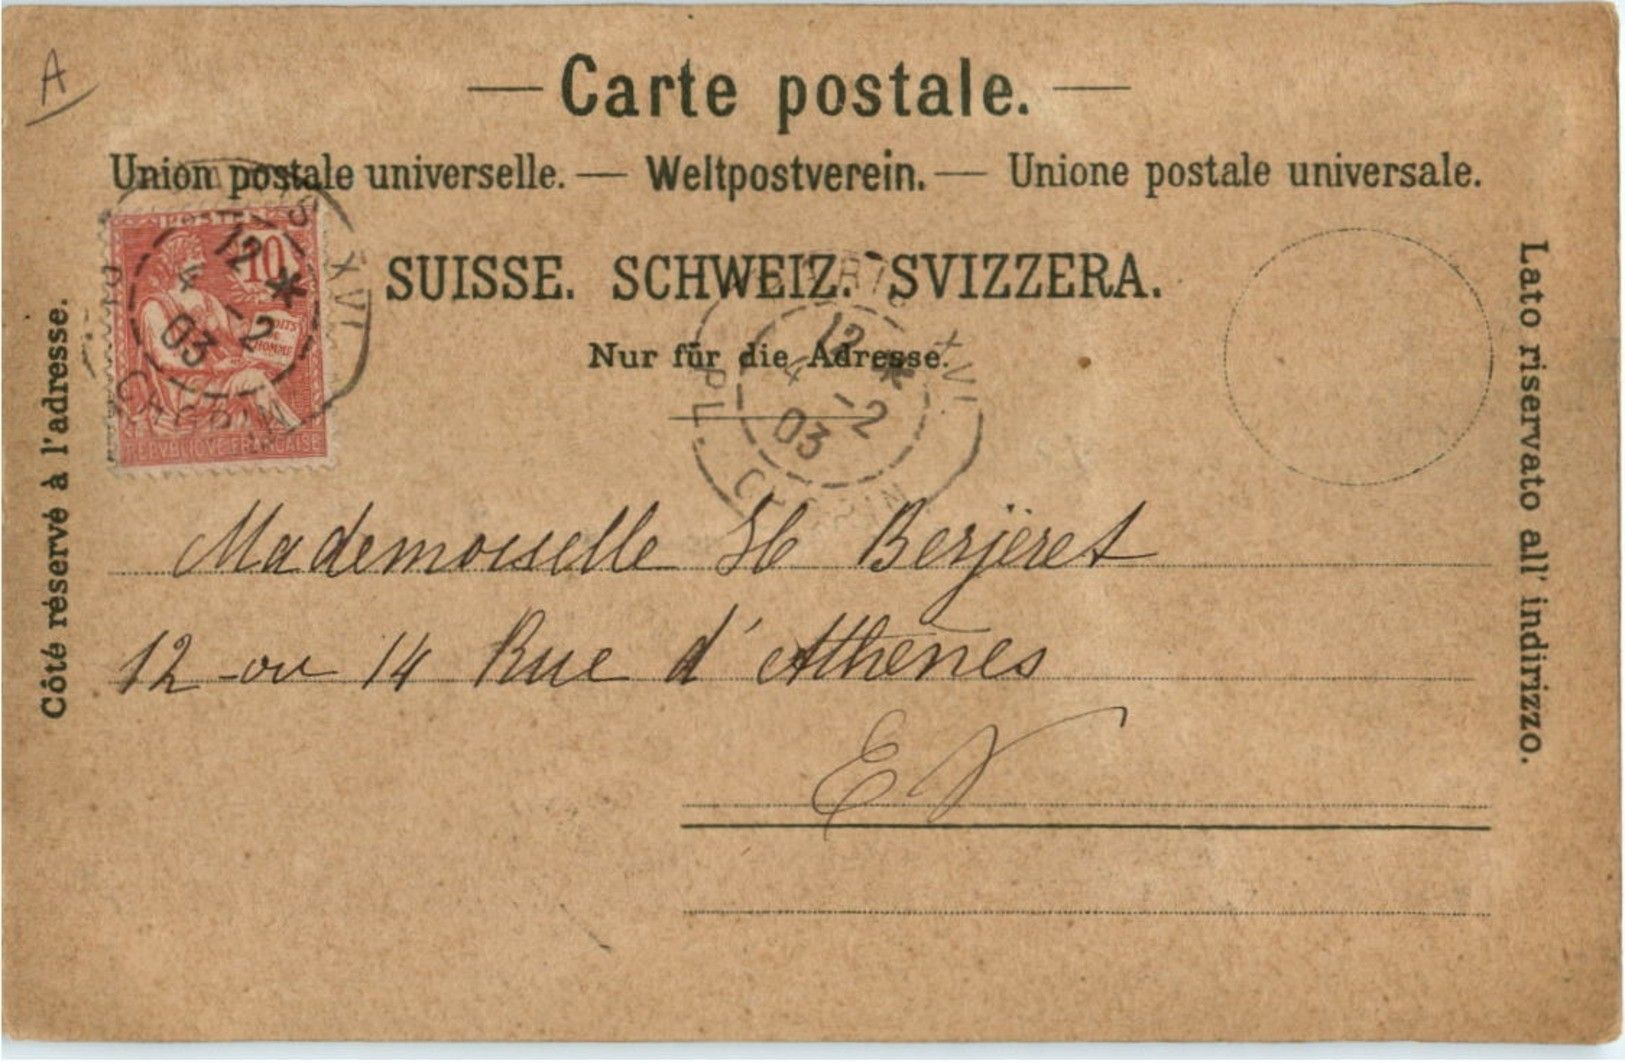 A
— Carte postale. —
Union postale universelle. — Weltpostverein. — Unione postale universale.
SUISSE. SCHWEIZ. SVIZZERA.
Nur für die Adresse.
Côté réservé à l'adresse.
Lato riservato all' indirizzo.
POSTES
10
DROITS
HOMME
REPVBLIQVE FRANÇAISE
XVI
12
4 -2
03
PARIS XVI
12
4 -2
03
PL. CHOPIN
Mademoiselle H Berjeret
12 ou 14 Rue d'Athènes
EV